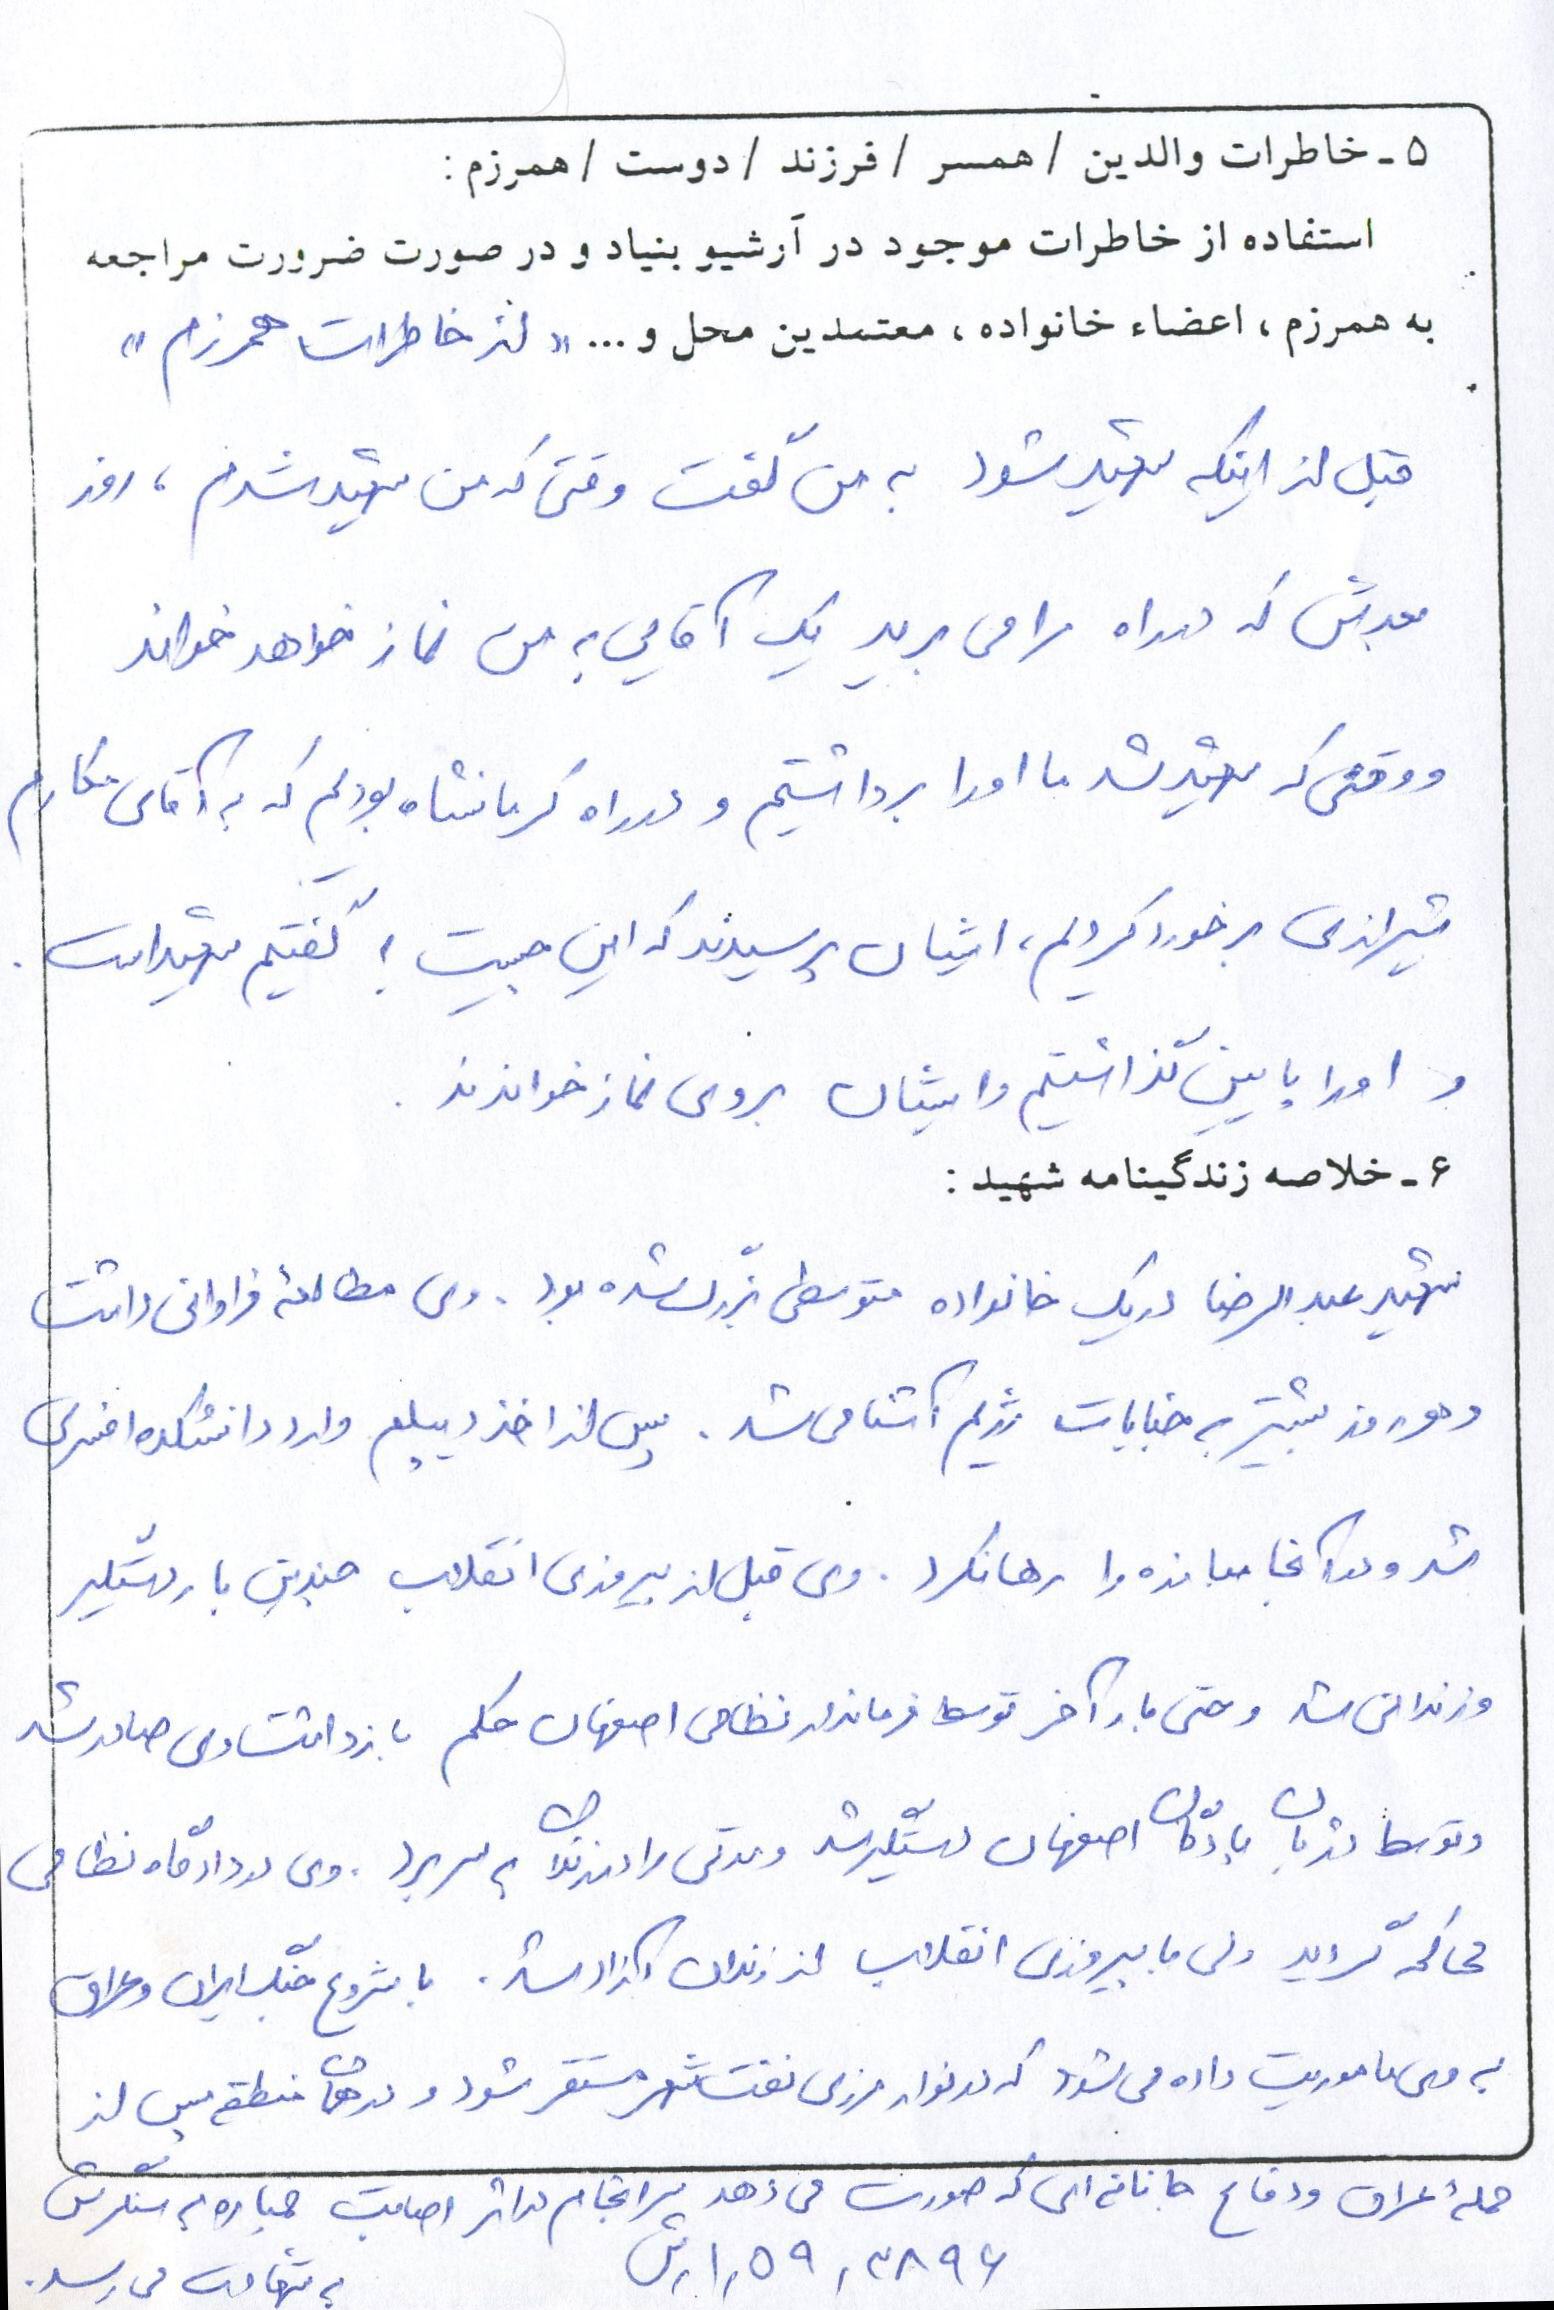 ۵ ـ خاطرات والدین / همسر / فرزند / دوست / همرزم :
استفاده از خاطرات موجود در آرشیو بنیاد و در صورت ضرورت مراجعه
به همرزم ، اعضاء خانواده ، معتمدین محل و ... « از خاطرات همرزم »
قبل از اینکه شهید شود به من گفت وقتی که من شهید شدم ، روز
بعدش که در راه مرا می برید یک آقایی به من نماز خواهد خواند
و وقتی که شهید شد ما او را برداشتیم و در راه کرمانشاه بودیم که به آقای مکارم
شیرازی برخورد کردیم ، ایشان پرسیدند که این چیست ؟ گفتیم شهید است .
و او را پایین گذاشتیم و ایشان بر وی نماز خواندند .
۶ ـ خلاصه زندگینامه شهید :
شهید عبدالرضا در یک خانواده متوسطی بزرگ شده بود . وی مطالعهٔ فراوانی داشت
و هر روز بیشتر به جنایات رژیم آشنا می شد . پس از اخذ دیپلم وارد دانشکده افسری
شد و در آنجا مبارزه را رها نکرد . وی قبل از پیروزی انقلاب چندین بار دستگیر
و زندانی شد و حتی بار آخر توسط فرماندار نظامی اصفهان حکم بازداشت وی صادر شد
و توسط دژبان پادگان اصفهان دستگیر شد و مدتی را در زندان به سر برد . وی در دادگاه نظامی
محاکمه گردید ولی با پیروزی انقلاب از زندان آزاد شد . با شروع جنگ ایران و عراق
به وی ماموریت داده می شود که در نوار مرزی نفت شهر مستقر شود و در همان منطقه پس از
حملهٔ عراق و دفاع جانانه ای که صورت می دهد سرانجام در اثر اصابت خمپاره به سنگرش
به شهادت می رسد .